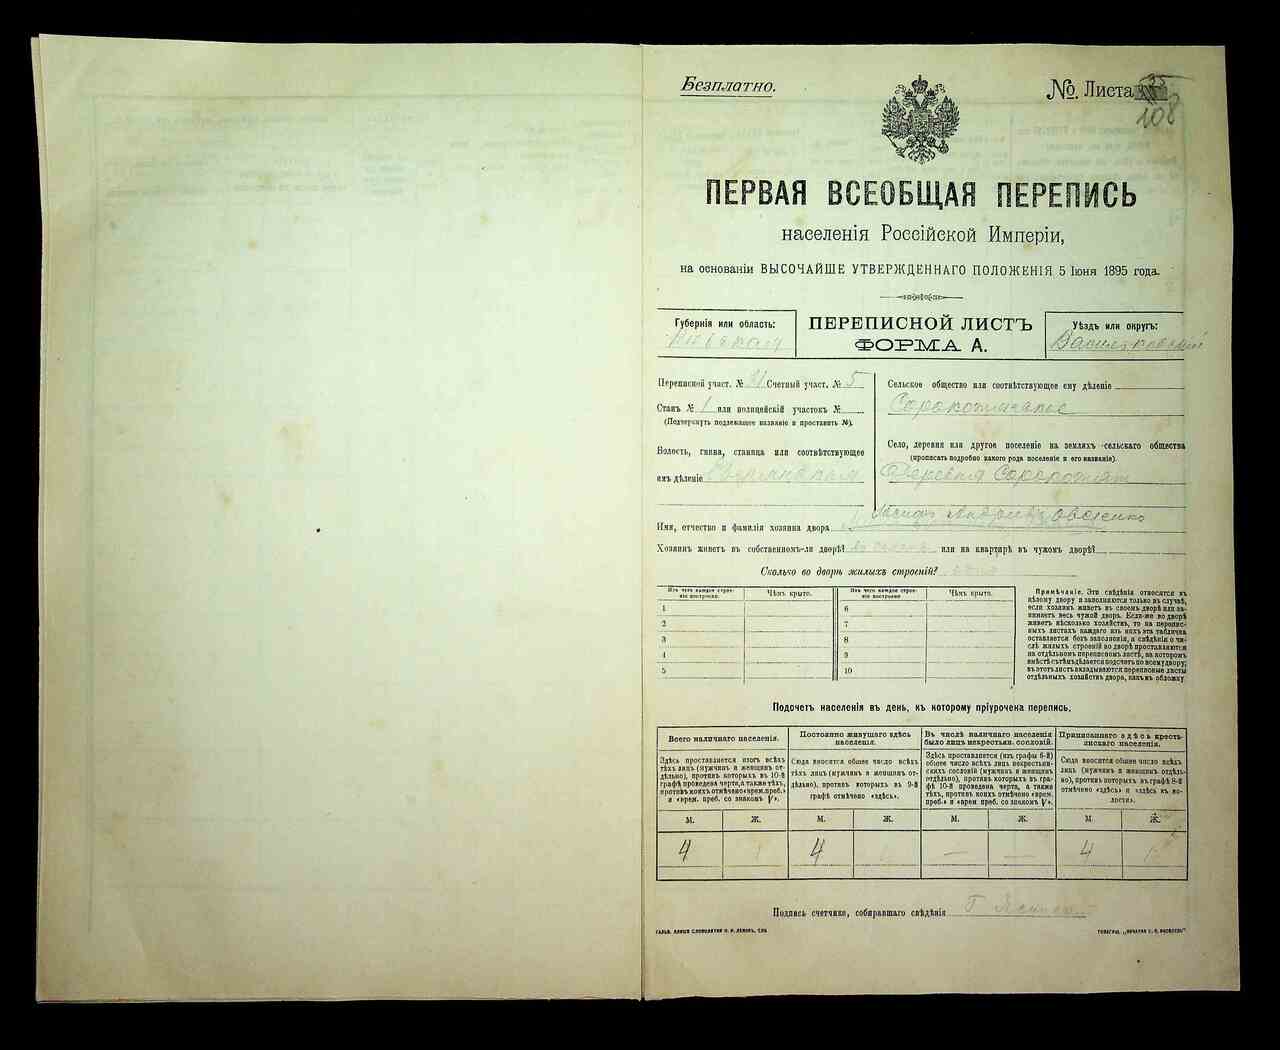 Безплатно.
№. Листа
108
ПЕРВАЯ ВСЕОБЩАЯ ПЕРЕПИСЬ
населенія Россійской Имперіи,
на основаніи ВЫСОЧАЙШЕ УТВЕРЖДЕННАГО ПОЛОЖЕНІЯ 5 Іюня 1895 года.
Губернія или область:
Кіевская
ПЕРЕПИСНОЙ ЛИСТЪ
ФОРМА А.
Уѣздъ или округъ:
Васильковскій
Переписной участ. № Счетный участ. № 5
Станъ № 1 или полицейскій участокъ №
(Подчеркнуть подлежащее названіе и проставить №).
Волость, гмина, станица или соотвѣтствующее
имъ дѣленіе
Сельское общество или соотвѣтствующее ему дѣленіе
Село, деревня или другое поселеніе на земляхъ сельскаго общества
(прописать подробно какого рода поселеніе и его названіе).
Деревня
Имя, отчество и фамилія хозяина двора
Хозяинъ живетъ въ собственномъ-ли дворѣ? или на квартирѣ въ чужомъ дворѣ?
Сколько во дворѣ жилыхъ строеній?
Изъ чего каждое строеніе построено
Чѣмъ крыто.
Изъ чего каждое строеніе построено
Чѣмъ крыто.
1 6
2 7
3 8
4 9
5 10
Примѣчаніе. Эти свѣдѣнія относятся къ
цѣлому двору и заполняются только въ случаѣ,
если хозяинъ живетъ въ своемъ дворѣ или за-
нимаетъ весь чужой дворъ. Если-же во дворѣ
живетъ нѣсколько хозяйствъ, то на перепис-
ныхъ листахъ каждаго изъ нихъ эта табличка
оставляется безъ заполненія, а свѣдѣнія о чи-
слѣ жилыхъ строеній во дворѣ проставляются
на отдѣльномъ переписномъ листѣ, на которомъ
вмѣстѣ съ тѣмъ дѣлается подсчетъ по всему двору;
въ этотъ листъ вкладываются переписные листы
отдѣльныхъ хозяйствъ двора, какъ въ обложку.
Подсчетъ населенія въ день, къ которому пріурочена перепись.
Всего наличнаго населенія.
Здѣсь проставляется итогъ всѣхъ
тѣхъ лицъ (мужчинъ и женщинъ от-
дѣльно), противъ которыхъ въ 10-й
графѣ проведена черта, а также тѣхъ,
противъ коихъ отмѣчено «врем. преб.»
и «врем. преб. со знакомъ V».
Постоянно живущаго здѣсь
населенія.
Сюда вносится общее число всѣхъ
тѣхъ лицъ (мужчинъ и женщинъ от-
дѣльно), противъ которыхъ въ 9-й
графѣ отмѣчено «здѣсь».
Въ числѣ наличнаго населенія
было лицъ некрестьян. сословій.
Здѣсь проставляется (изъ графы 6-й)
общее число всѣхъ лицъ некрестьян-
скихъ сословій (мужчинъ и женщинъ
отдѣльно), противъ которыхъ въ гра-
фѣ 10-й проведена черта, а также
тѣхъ, противъ коихъ отмѣчено «врем.
преб.» и «врем. преб. со знакомъ V».
Приписаннаго здѣсь кресть-
янскаго населенія.
Сюда вносятся общее число всѣхъ
лицъ (мужчинъ и женщинъ отдѣль-
но), противъ которыхъ въ графѣ 8-й
отмѣчено «здѣсь» и «здѣсь въ во-
лости».
М. Ж. М. Ж. М. Ж. М. Ж.
4 4 — — 4
Подпись счетчика, собиравшаго свѣдѣнія